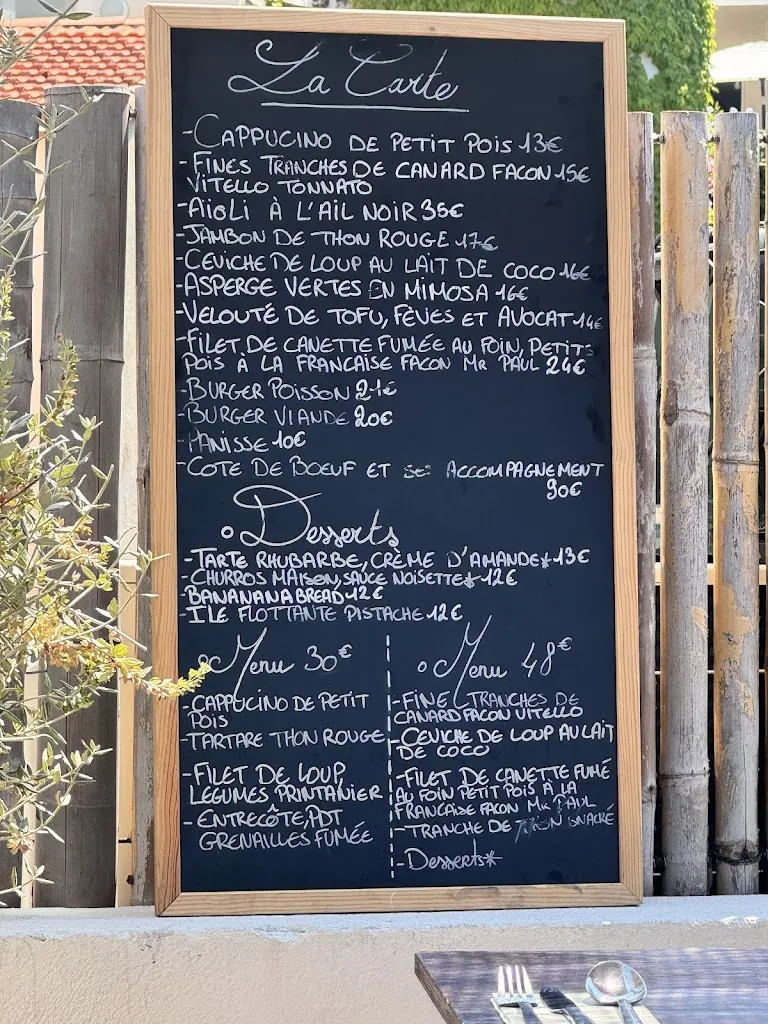 La Carte
-CAPPUCINO DE PETIT POIS 13€
-FINES TRANCHES DE CANARD FACON 15€
VITELLO TONNATO
-AÏOLI À L'AIL NOIR 36€
-JAMBON DE THON ROUGE 17€
-CEVICHE DE LOUP AU LAIT DE COCO 16€
-ASPERGE VERTES EN MIMOSA 16€
-VELOUTÉ DE TOFU, FÈVES ET AVOCAT 14€
-FILET DE CANETTE FUMÉE AU FOIN, PETITS
POIS À LA FRANCAISE FACON MR PAUL 24€
-BURGER POISSON 21€
-BURGER VIANDE 20€
-PANISSE 10€
-COTE DE BOEUF ET ACCOMPAGNEMENT
90€
o Desserts
-TARTE RHUBARBE, CRÈME D'AMANDE* 13€
-CHURROS MAISON, SAUCE NOISETTE* 12€
BANANANABREAD 12€
-ILE FLOTTANTE PISTACHE 12€
o Menu 30€
-CAPPUCINO DE PETIT
POIS
-TARTARE THON ROUGE
-FILET DE LOUP,
LEGUMES PRINTANIER
-ENTRECÔTE, PDT
GRENAILLES FUMÉE
o Menu 48€
-FINE TRANCHES DE
CANARD FACON VITELLO
-CEVICHE DE LOUP AU LAIT
DE COCO
-FILET DE CANETTE FUMÉ
AU FOIN PETIT POIS À LA
FRANCAISE FACON MR PAUL
-TRANCHE DE SNACKÉ
-Desserts*